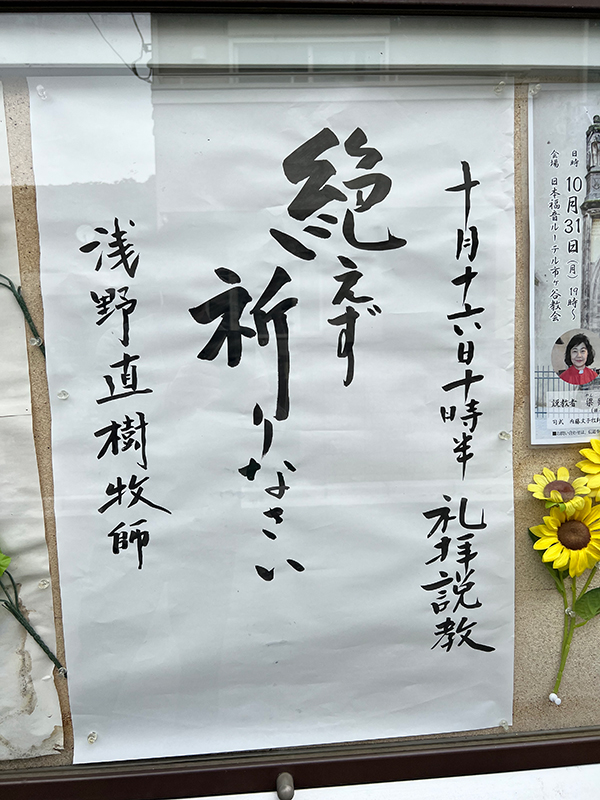 十月十六日十時半 礼拝説教
絶えず
祈りなさい
浅野直樹牧師
日時 10月31日(月) 19時〜
会場 日本福音ルーテル市ヶ谷教会
説教者
司式